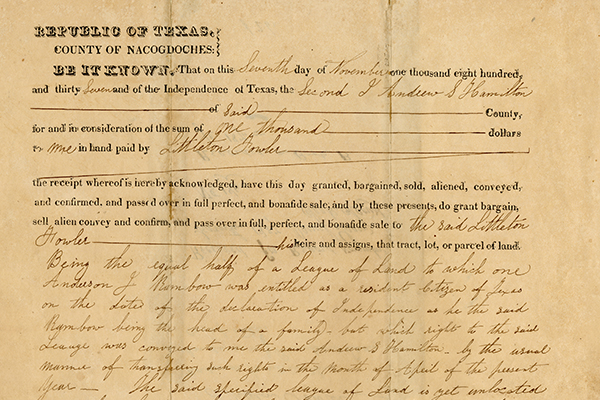 REPUBLIC OF TEXAS,
COUNTY OF NACOGDOCHES:
BE IT KNOWN, That on this Seventh day of November one thousand eight hundred,
and thirty Seven and of the Independence of Texas, the Second I Andrew S Hamilton
of Said County,
for and in consideration of the sum of One thousand dollars
to me in hand paid by Littleton Fowler
the receipt whereof is hereby acknowledged, have this day granted, bargained, sold, aliened, conveyed,
and confirmed, and passed over in full perfect, and bonafide sale, and by these presents, do grant bargain,
sell, alien convey and confirm, and pass over in full, perfect, and bonafide sale to the said Littleton
Fowler his heirs and assigns, that tract, lot, or parcel of land.
Being the equal half of a League of Land to which one
Anderson J Rambow was entitled as a resident Citizen of Texas
on the date of the declaration of Independence as he the said
Rambow being the head of a family - but which right to the said
Leauge was conveyed to me the said Andrew S Hamilton - by the usual
manner of transfering such rights in the Month of April of the present
Year - The said specified league of Land is yet unlocated